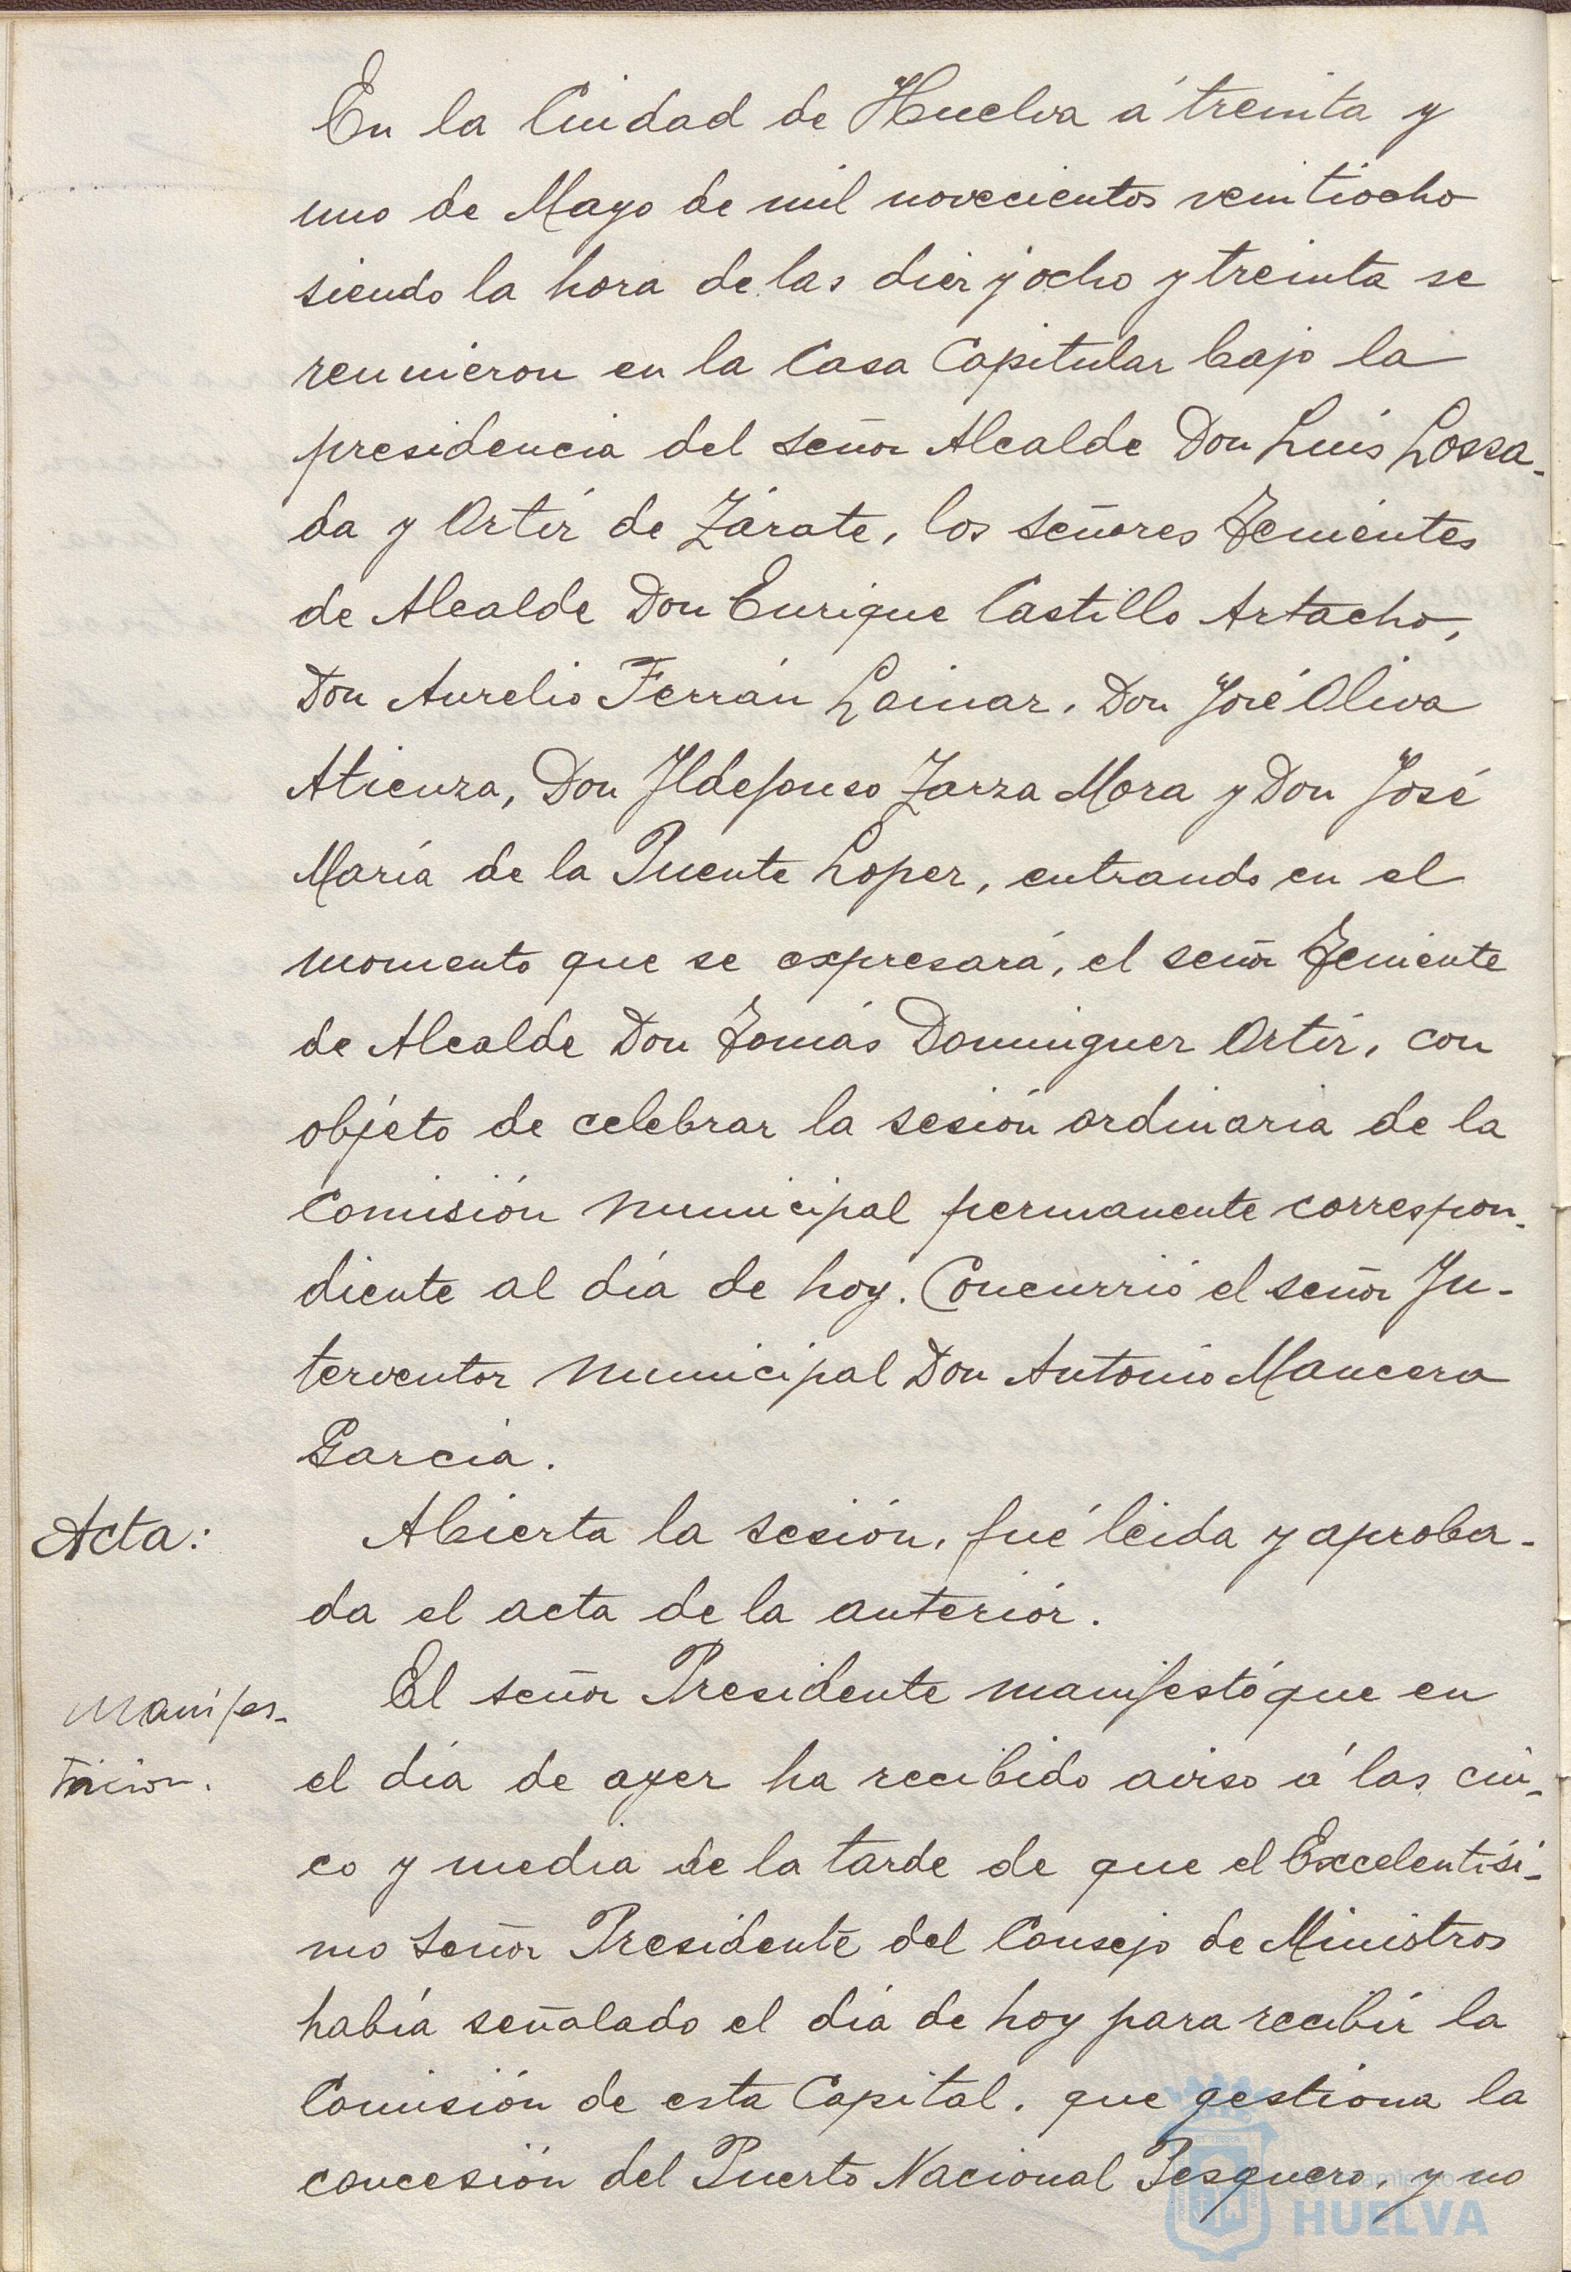 En la Ciudad de Huelva á treinta y
uno de Mayo de mil novecientos veintiocho
siendo la hora de las diez y ocho y treinta se
reunieron en la Casa Capitular bajo la
presidencia del señor Alcalde Don Luis Lossa-
da y Ortiz de Zárate, los señores Tenientes
de Alcalde Don Enrique Castillo Artacho,
Don Aurelio Ferrán Lainaz, Don José Oliva
Atienza, Don Ildefonso Zarza Mora y Don José
María de la Puente Lopez, entrando en el
momento que se expresará, el señor Teniente
de Alcalde Don Tomás Dominguez Ortiz, con
objeto de celebrar la sesión ordinaria de la
Comisión Municipal permanente correspon-
diente al día de hoy. Concurrió el señor In-
terventor Municipal Don Antonio Mancera
Garcia.
Acta: Abierta la sesión, fué leida y aproba-
da el acta de la anterior.
Manifes- El señor Presidente manifestó que en
tacion. el día de ayer ha recibido aviso á las cin-
co y media de la tarde de que el Excelentísi-
mo señor Presidente del Consejo de Ministros
había señalado el día de hoy para recibir la
Comisión de esta Capital, que gestiona la
concesión del Puerto Nacional Pesquero, y no
HUELVA